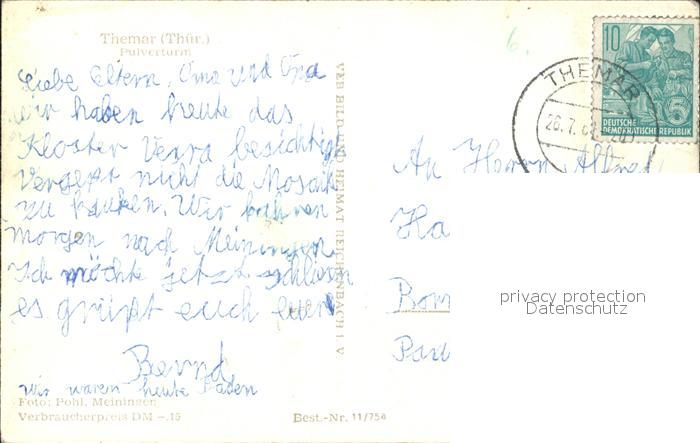 Themar (Thür.)
Pulverturm
Liebe Eltern, Oma und Opa
wir haben heute das
Kloster Vessra besichtigt
Vergest nicht die Mosaik
zu kaufen. Wir fahren
morgen nach Meiningen.
Ich möchte jetzt schliesen
es grüßt euch euer
Bernd
wir waren heute Baden
Foto: Pohl, Meiningen
Verbraucherpreis DM -.15
Best.-Nr. 11/754
VEB BILD UND HEIMAT REICHENBACH I. V
6.
THEMAR
26.7.
10
5
DEUTSCHE
DEMOKRATISCHE REPUBLIK
An Herrn Alfred
Ha
Bor
Par
privacy protection
Datenschutz